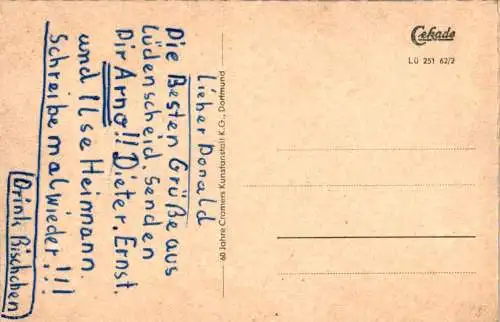 Lieber Donald
Die Besten Grüße aus
Lüdenscheid, senden
Dir Arno!! Dieter. Ernst.
und Ilse Heimann.
Schreibe mal wieder!!!
Drink Bischchen
60 Jahre Cramers Kunstanstalt K.G., Dortmund
Cekade
LÜ 251 62/2